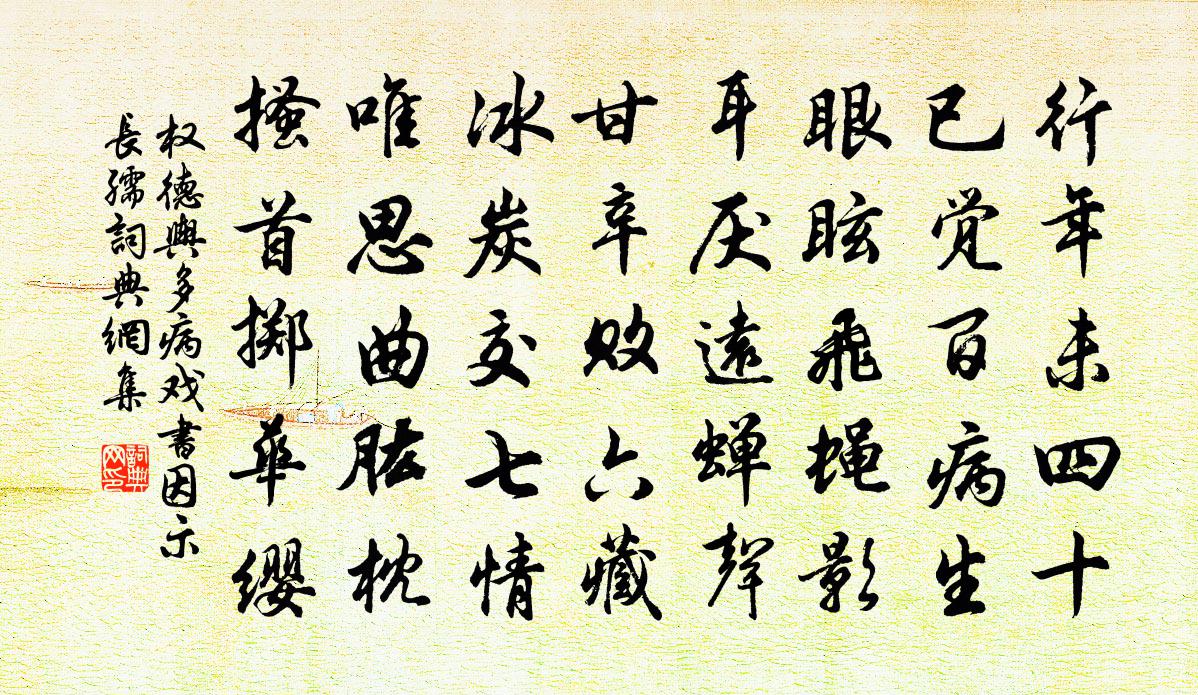 行年未四十
已觉百病生
眼眩飛蝇影
耳厌遠蝉聲
甘辛败六藏
冰炭交七情
唯思曲肱枕
搔首掷華缨
权德輿多病戏書因示
長孺詞典網集
詞典
网印